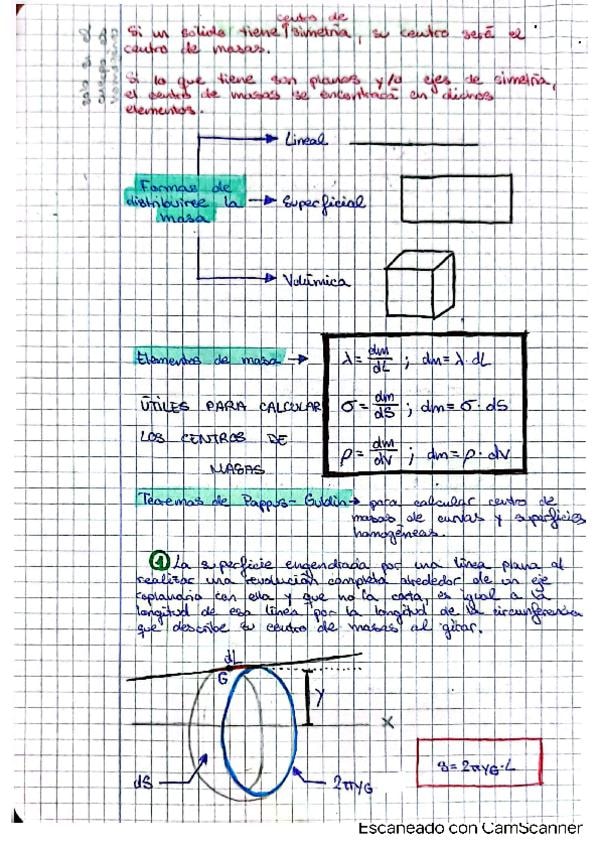 centro de
Si un sólido tiene simetría, su centro será el
centro de masas.
Si lo que tiene son planos y/o ejes de simetría,
el centro de masas se encontrará en dichos
elementos.
solo si el
cuerpo es
Lineal
Formas de
distribuirse la
masa
Superficial
Volúmica
Elementos de masa
λ = dm/dL ; dm = λ · dL
ÚTILES PARA CALCULAR
LOS CENTROS DE
MASAS
σ = dm/dS ; dm = σ · dS
ρ = dm/dV ; dm = ρ · dV
Teoremas de Pappus-Guldin → para calcular centro de
masas de curvas y superficies
homogéneas.
① La superficie engendrada por una línea plana al
realizar una revolución completa alrededor de un eje
coplanario con ella y que no la corta, es igual a la
longitud de esa línea por la longitud de la circunferencia
que describe su centro de masas al girar.
dL
G
y
x
dS
2πyG
S = 2πyG·L
Escaneado con CamScanner